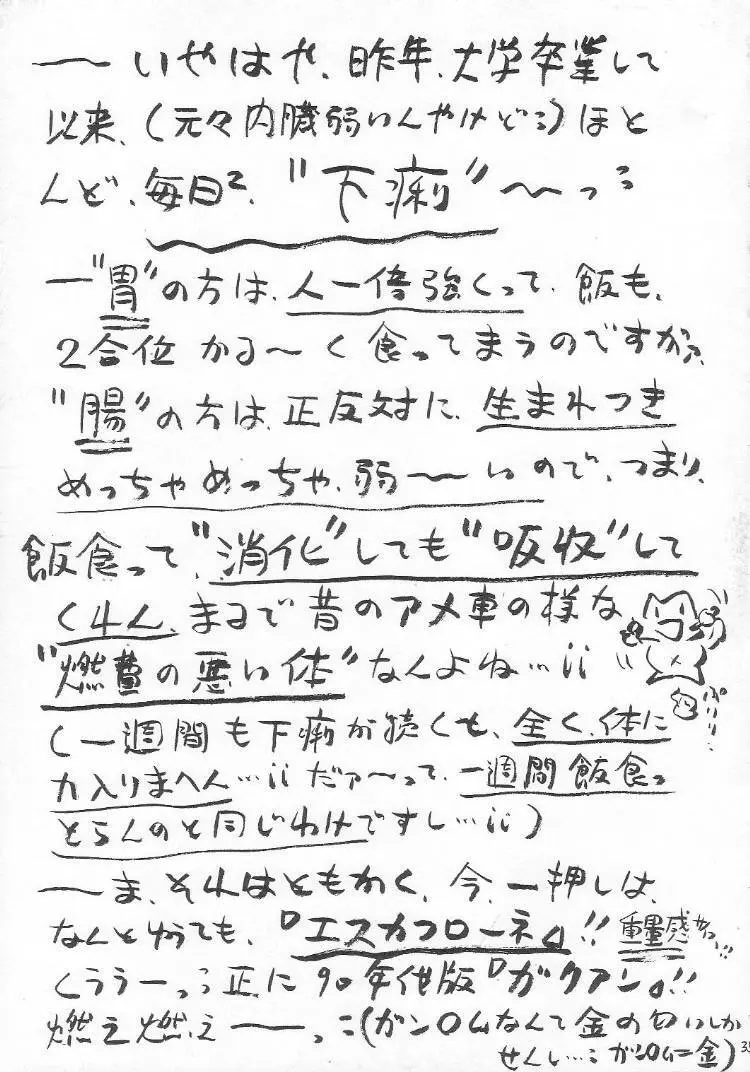 ── いやはや、昨年、大学卒業して
以来、(元々内臓弱いんやけど…)ほと
んど、毎日²、"下痢"〜〜っ…
─"胃"の方は、人一倍強くって、飯も、
2合位かる〜く食ってまうのですがァ、
"腸"の方は、正反対に、生まれつき
めっちゃめっちゃ、弱──いので、つまり、
飯食って、"消化"しても"吸収"して
くれん、まるで昔のアメ車の様な
"燃費の悪い体"なんよね…ii
ぷりり…
(一週間も下痢が続くと、全く、体に
力入りまへん…ii だァ〜って、一週間飯食っ
とらんのと同じわけですし…ii)
──ま、それはともかく、今、一押しは、
なんと ゆうても、『エスカフローネ』!! 重量感せつ…!!
くううーっ… 正に90年代版『ガクアン』!!
燃え燃え──っ…(ガンロムなんて金の匂いしか
せんし… ガンロム=金)